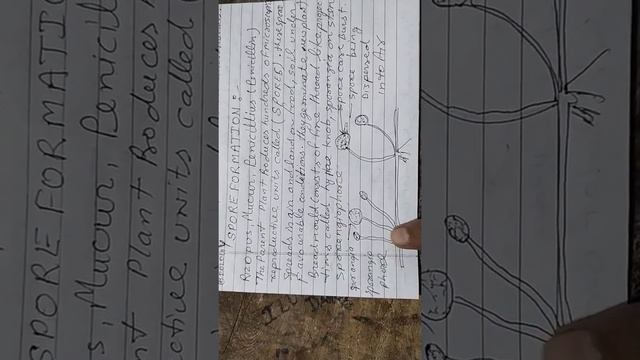 Biology
SPORE FORMATION:-
Rizopus Mucour, Penicillius (Penicillin)
The Parent Plant Produces hundreds of microscopic
reproductive units called (SPORES). These spore
Spreads in air and land on food, soil under
Favourable conditions. They germinate newplant)
Bread mould consists of fine thread like projec
tions called, hyphae knob, sporangia on stem
Sporangiophore spore case burst.
gorangia
Sporangio
phore
Spore being
Dispersed
into Air
SPORE FORMATIO
s, Mucour, Penicill
nt Plant Produces
ctive units called (